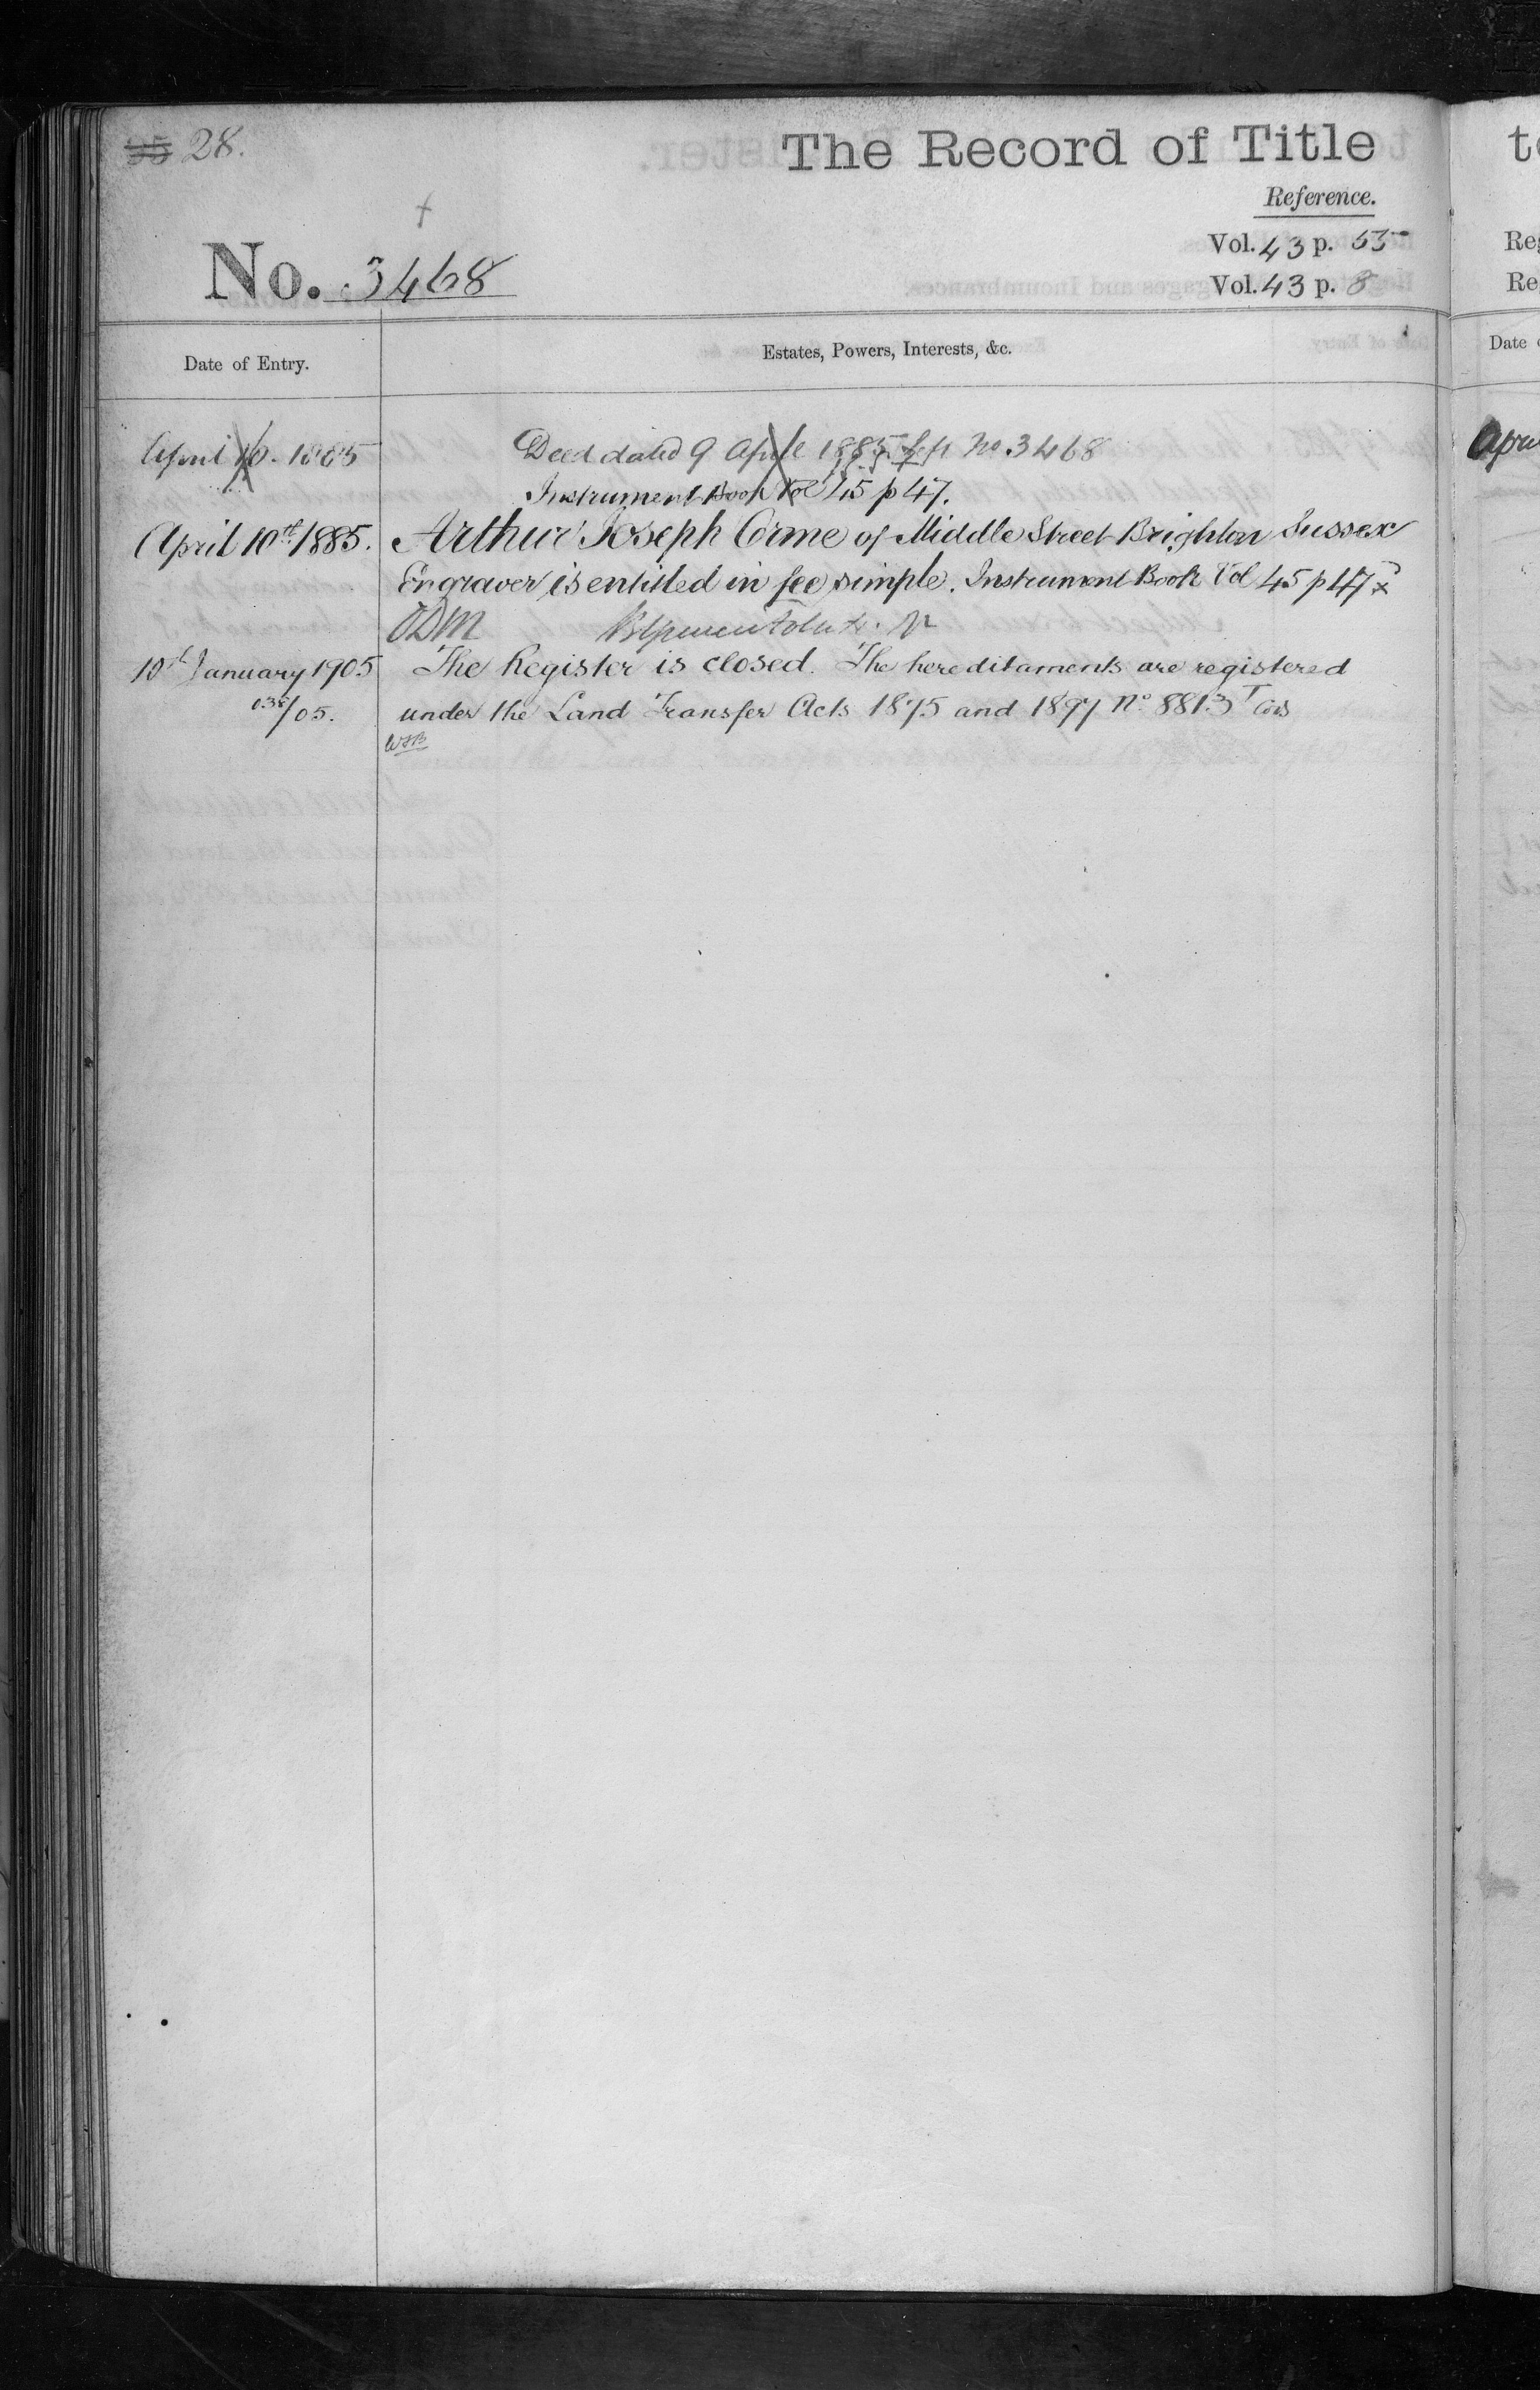 95 28.
The Record of Title
Reference.
Vol. 43 p. 65
Vol. 43 p. 8
No. 3468
Date of Entry.
Estates, Powers, Interests, &c.
April 10. 1885
Deed dated 9 April 1885 No 3468
Instrument Book Vol 45 p 47.
April 10th 1885.
Arthur Joseph Orme of Middle Street Brighton Sussex
Engraver is entitled in fee simple. Instrument Book Vol 45 p 47 x
ODM
10th January 1905
The Register is closed. The hereditaments are registered
/05.
under the Land Transfer Acts 1875 and 1897 No. 8813
Re
Date
April